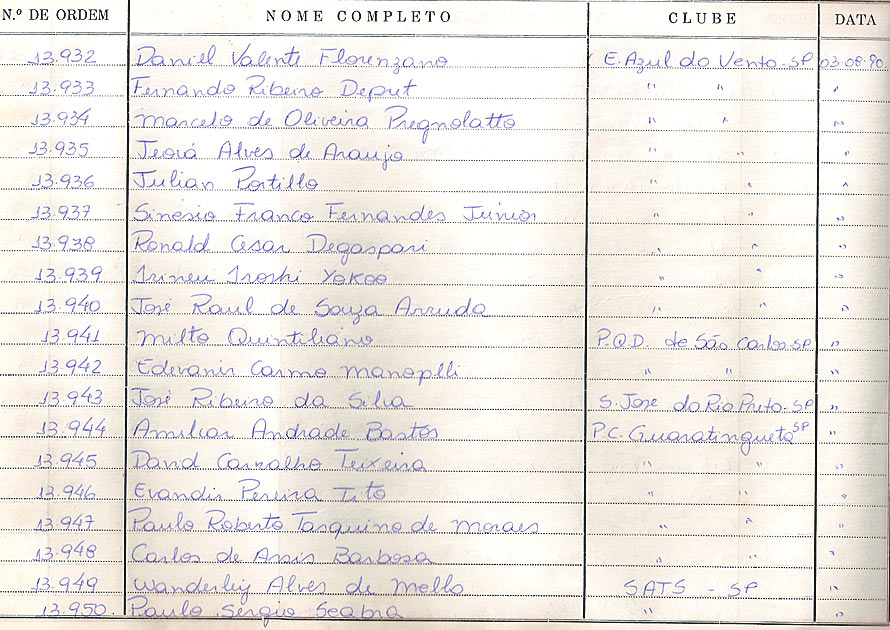 N.º DE ORDEM NOME COMPLETO CLUBE DATA
13.932 Daniel Valente Florenzano E. Azul do Vento-SP 03.08.90.
13.933 Fernando Ribeiro Deput " " "
13.934 Marcelo de Oliveira Pregnolatto " " "
13.935 Jeová Alves de Araujo " " "
13.936 Julian Portillo " " "
13.937 Sinesio Franco Fernandes Junior " " "
13.938 Ronald Cesar Degaspari " " "
13.939 Irineu Iroshi Yokoo " " "
13.940 José Raul de Souza Arruda " " "
13.941 Milto Quintiliano P.Q.D. de São Carlos-SP "
13.942 Edevanir Carmo Manoplli " " "
13.943 José Ribeiro da Silva S. José do Rio Preto-SP "
13.944 Amilcar Andrade Bastos P.C. Guaratinguetá SP "
13.945 David Carvalho Teixeira " " "
13.946 Evandir Pereira Tito " " "
13.947 Paulo Roberto Tarquino de Moraes " " "
13.948 Carlos de Assis Barbosa " " "
13.949 Wanderley Alves de Mello SATS - SP "
13.950. Paulo Sérgio Seabra "